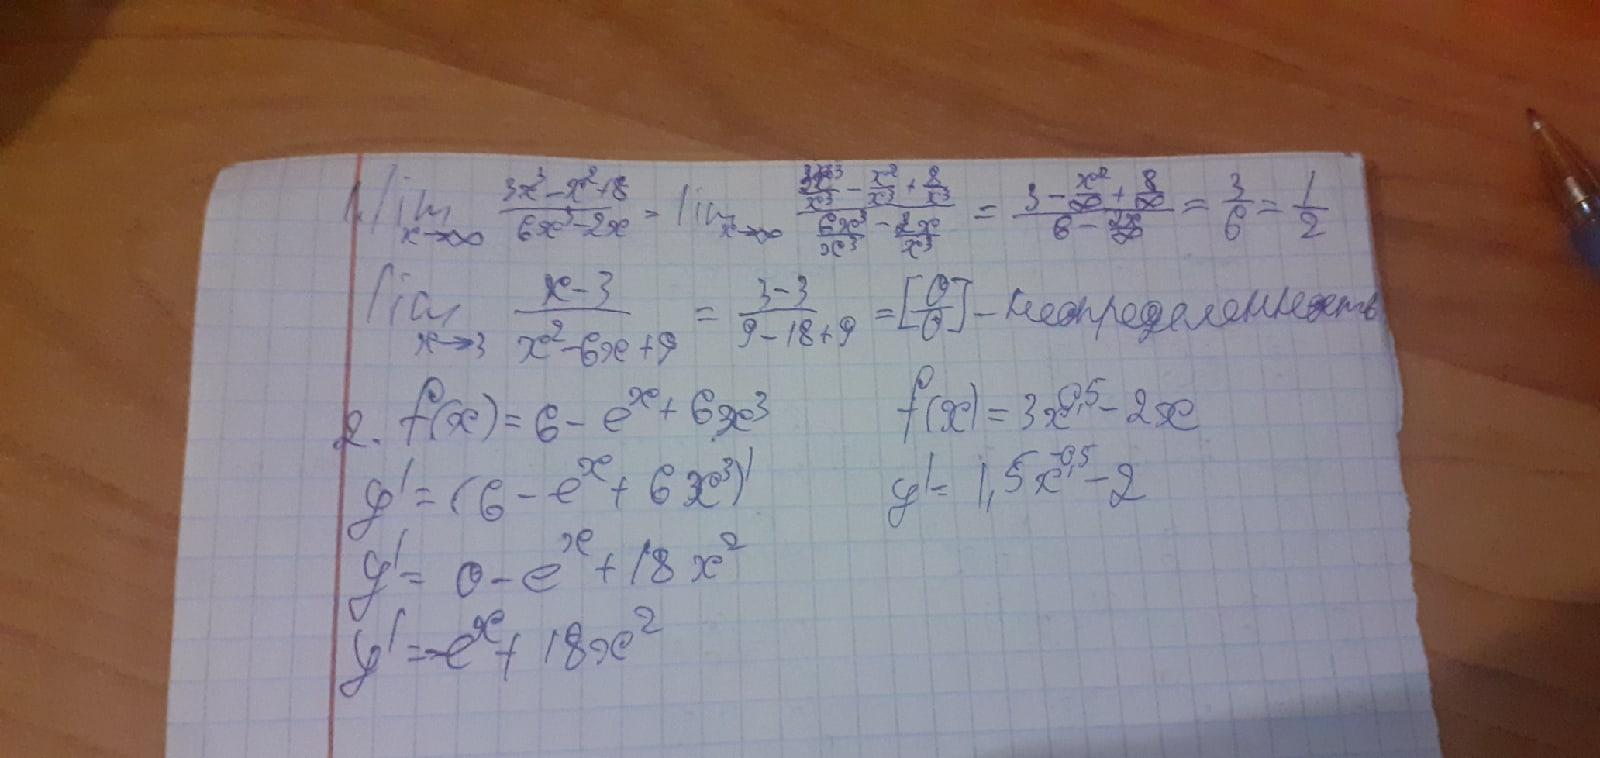 1. lim x→∞ (3x³-x²+8)/(6x³-2x) = lim x→∞ (3x³/x³ - x²/x³ + 8/x³)/(6x³/x³ - 2x/x³) = (3 - x²/∞ + 8/∞)/(6 - 2x/∞) = 3/6 = 1/2
lim x→3 (x-3)/(x²-6x+9) = (3-3)/(9-18+9) = [0/0] - неопределенность
2. f(x) = 6 - eˣ + 6x³ f(x) = 3x^0,5 - 2x
y' = (6 - eˣ + 6x³)' y' = 1,5x^-0,5 - 2
y' = 0 - eˣ + 18x²
y' = -eˣ + 18x²